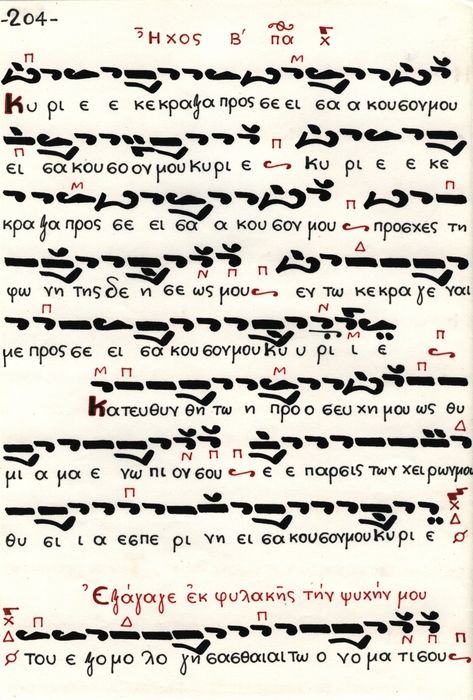 -204-
Ἦχος Β' πα
Κυ ρι ε ε κε κρα ξα προς σε ει σα α κου σον μου
ει σα κου σο ον μου Κυ ρι ε Κυ ρι ε ε κε
κρα ξα προς σε ει σα α κου σον μου προσχες τη
φω νη της δε η σε ως μου εν τω κε κρα γε ναι
με προς σε ει σα κου σον μου Κυ υ ρι ι ε
Κατευθυν θη τω η προ ο σευ χη μου ως θυ
μι α μα ε νω πι ον σου ε ε παρσις των χει ρων μου
θυ σι ι α εσπε ρι νη ει σα κου σον μου Κυ ρι ε
Ἐξάγαγε ἐκ φυλακῆς τήν ψυχήν μου
του ε ξο μο λο γη σασθαι αι τω ο νο μα τι σου